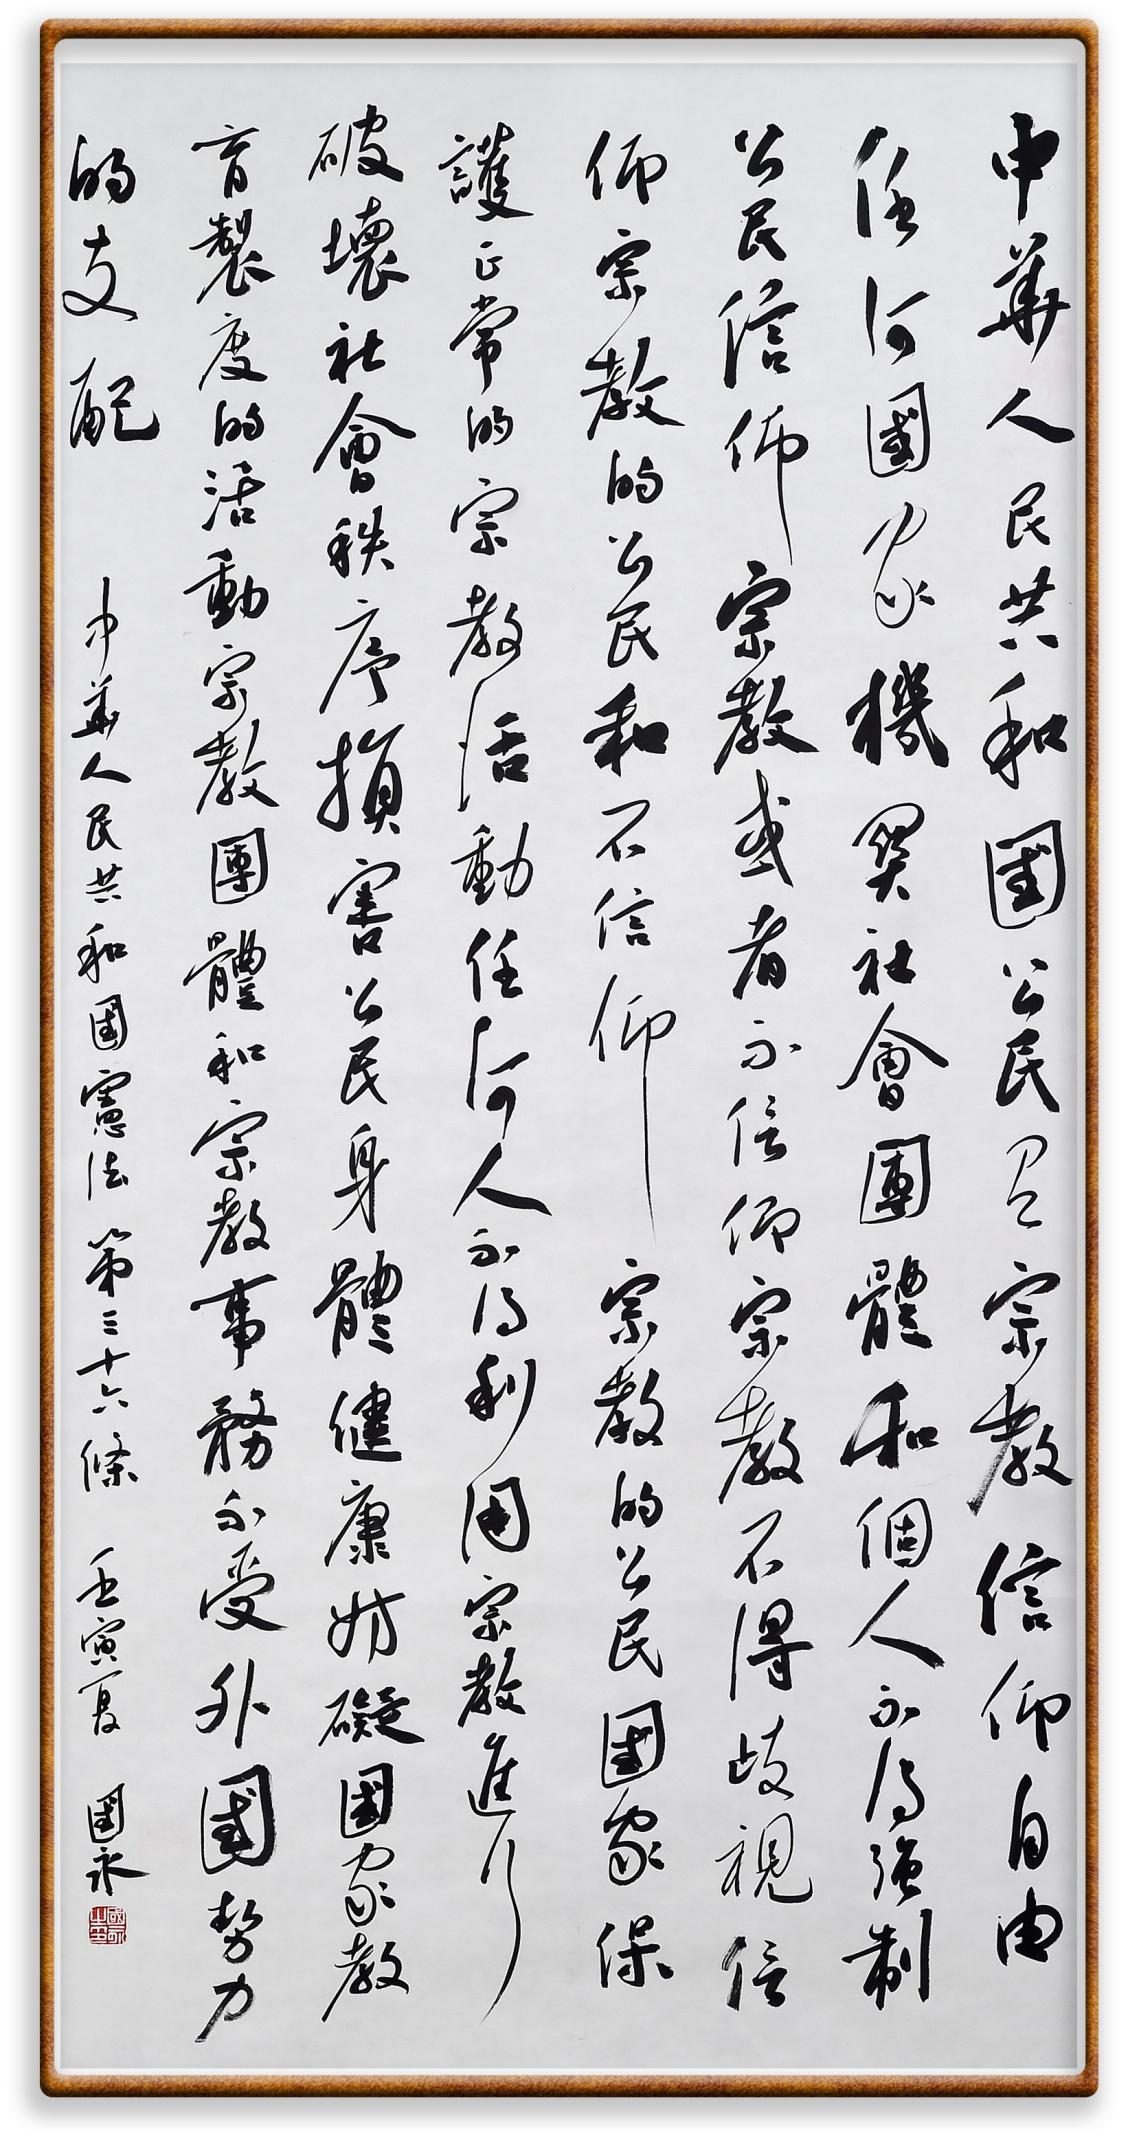 中華人民共和國公民有宗教信仰自由
任何國家機關社會團體和個人不得强制
公民信仰宗教或者不信仰宗教不得歧視信
仰宗教的公民和不信仰宗教的公民國家保
護正常的宗教活動任何人不得利用宗教進行
破壞社會秩序損害公民身體健康妨礙國家教
育製度的活動宗教團體和宗教事務不受外國勢力
的支配
中華人民共和國憲法第三十六條 壬寅夏 國永